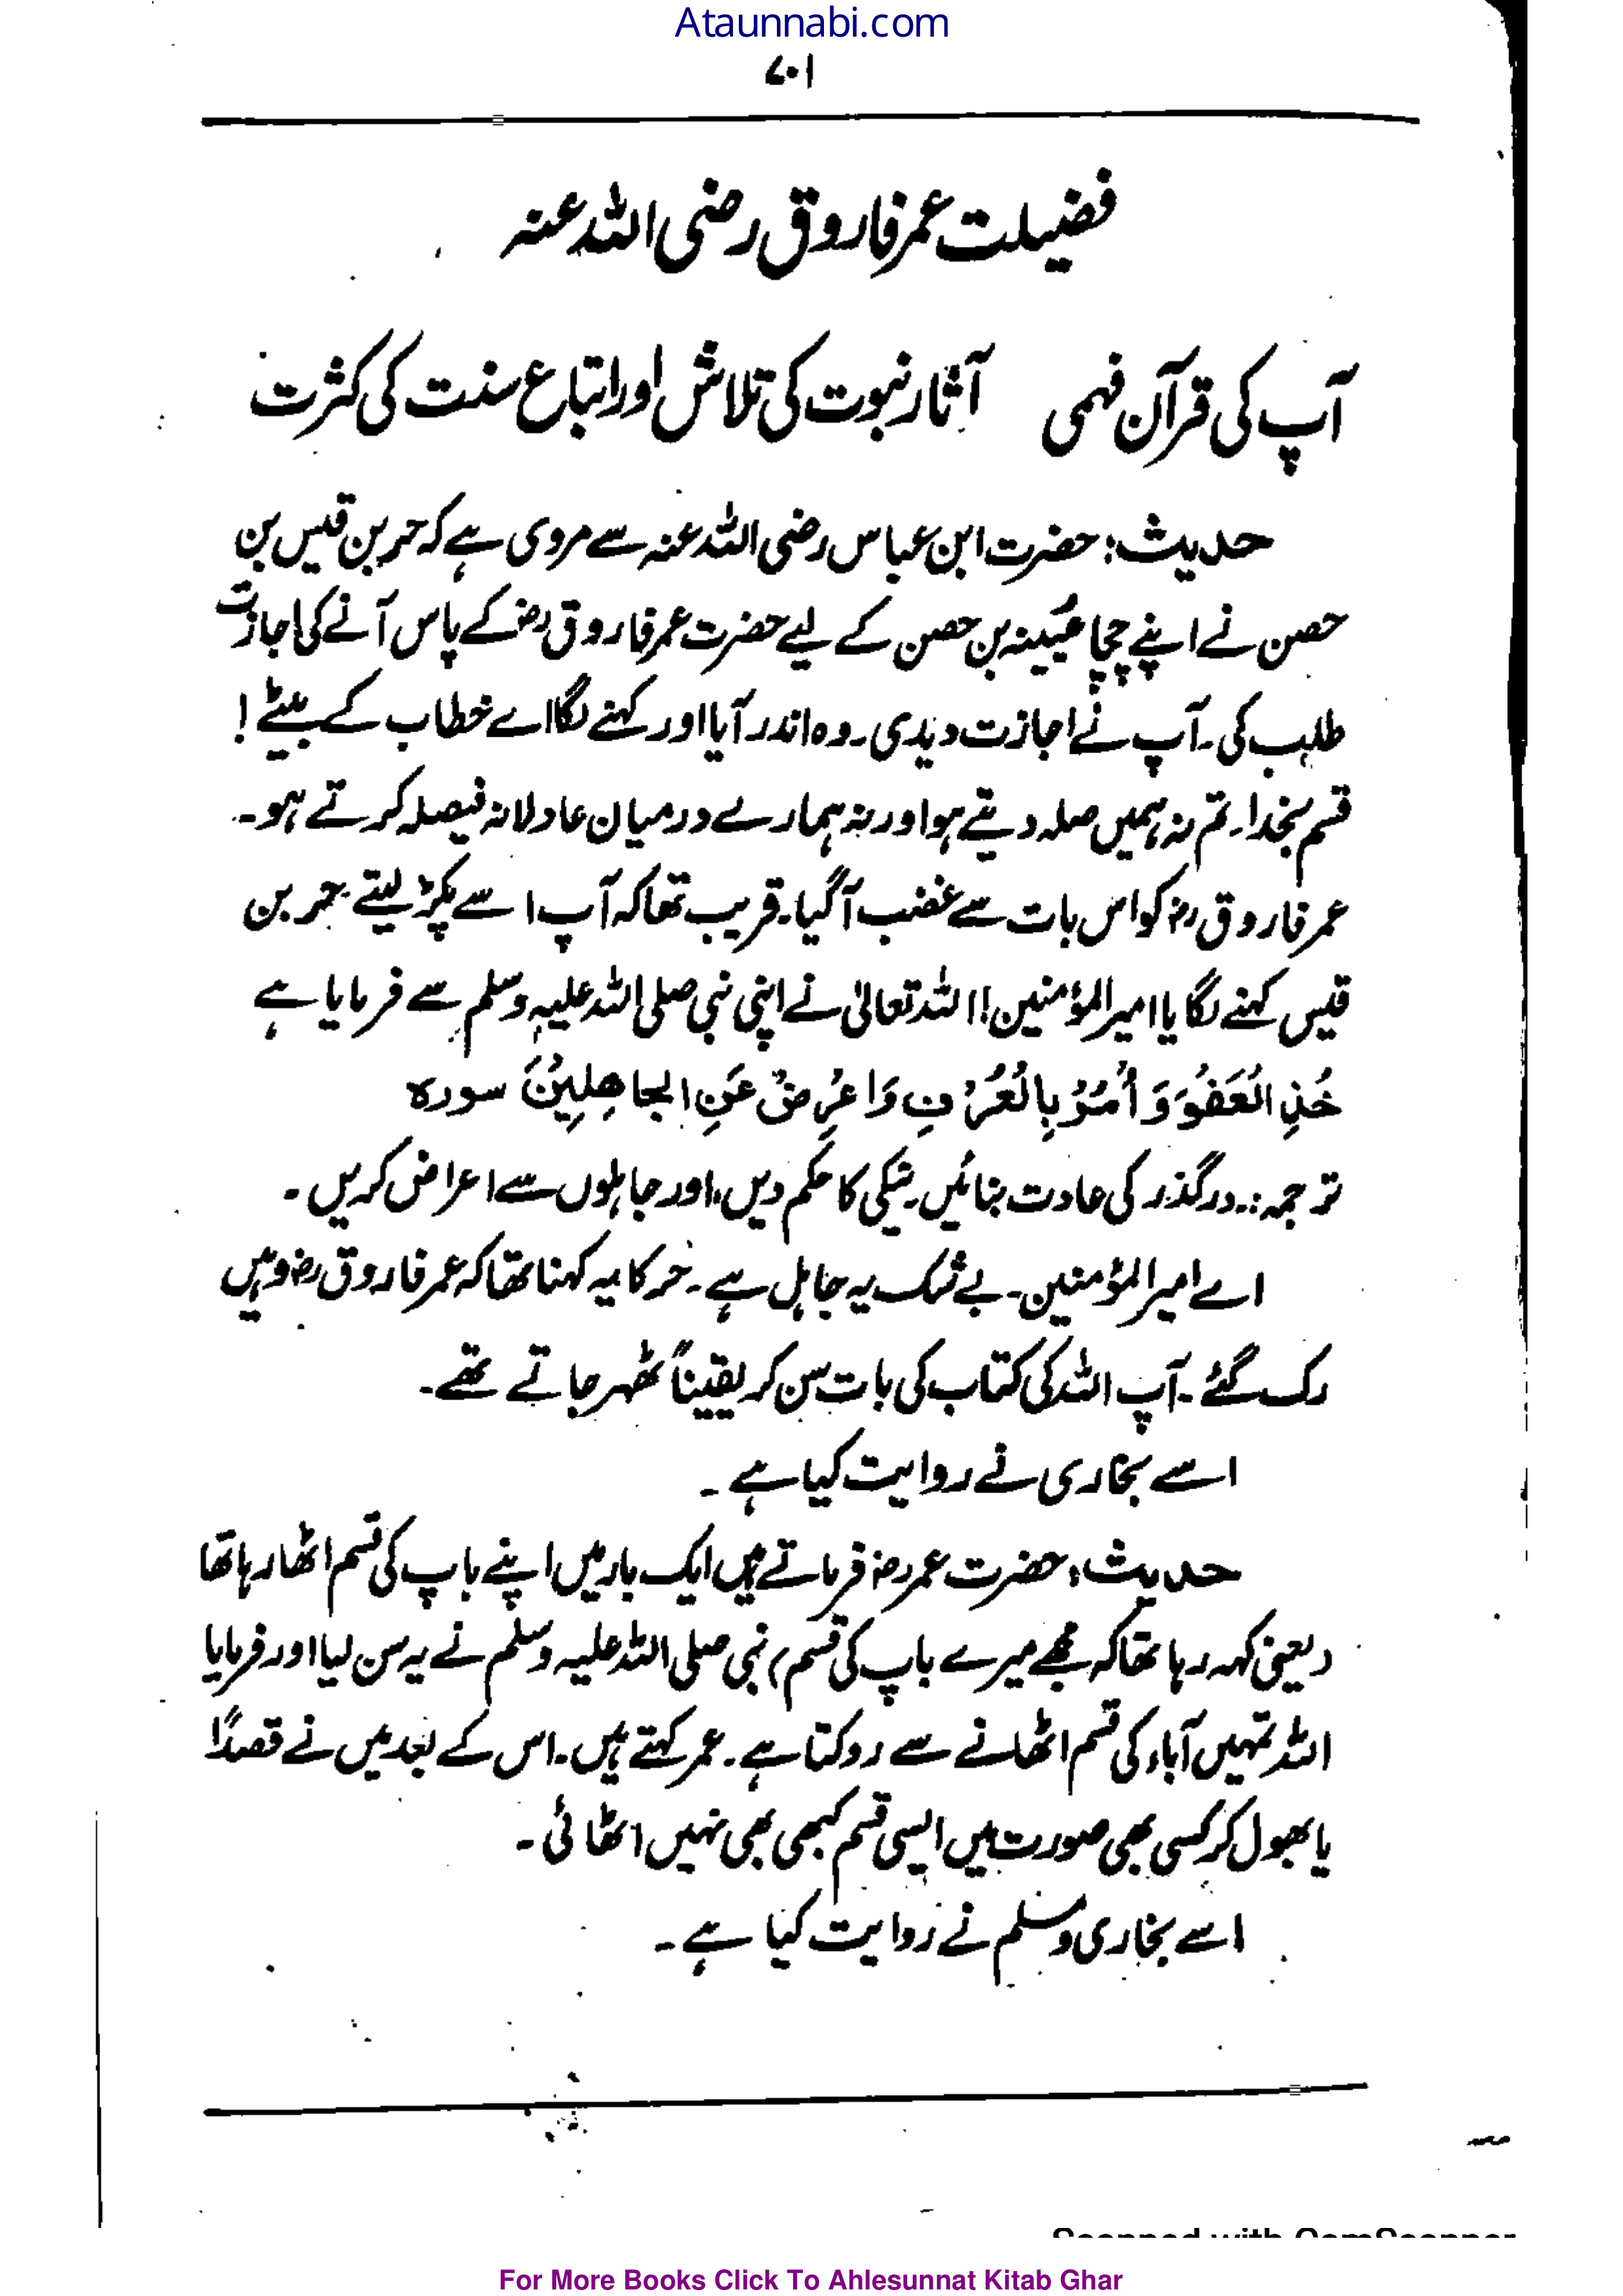 Ataunnabi.com
۷۰۱
فضیلت عمر فاروق رضی اللہ عنہ
آپ کی قرآن فہمی آثار نبوت کی تلاش اور اتباع سنت کی کثرت
حدیث: حضرت ابن عباس رضی اللہ عنہ سے مروی ہے کہ حر بن قیس بن
حصن نے اپنے چچا عُیَینہ بن حصن کے لیے حضرت عمر فاروق رضؓ کے پاس آنے کی اجازت
طلب کی۔ آپ نے اجازت دیدی۔ وہ اندر آیا اور کہنے لگا اے خطاب کے بیٹے!
قسم بخدا۔ تم نہ ہمیں صلہ دیتے ہو اور نہ ہمارے درمیان عادلانہ فیصلہ کرتے ہو۔
عمر فاروق رضؓ کو اس بات سے غضب آگیا۔ قریب تھا کہ آپ اسے پکڑ لیتے۔ حر بن
قیس کہنے لگا یا امیر المؤمنین! اللہ تعالیٰ نے اپنی نبی صلی اللہ علیہ وسلم سے فرمایا ہے
خُذِ الْعَفْوَ وَ أْمُرْ بِالْعُرْفِ وَ اَعْرِضْ عَنِ الجاھِلِیْنَ سورہ
ترجمہ:۔ درگذر کی عادت بنائیں۔ نیکی کا حکم دیں، اور جاہلوں سے اعراض کریں۔
اے امیر المؤمنین۔ بے شک یہ جاہل ہے۔ حُر کا یہ کہنا تھا کہ عمر فاروق رضؓ وہیں
رک گئے۔ آپ اللہ کی کتاب کی بات سن کر یقیناً ٹھہر جاتے تھے۔
اسے بخاری نے روایت کیا ہے۔
حدیث: حضرت عمر رضؓ فرماتے ہیں ایک بار میں اپنے باپ کی قسم اٹھا رہا تھا
(یعنی کہہ رہا تھا کہ مجھے میرے باپ کی قسم) نبی صلی اللہ علیہ وسلم نے یہ سن لیا اور فرمایا
اللہ تمہیں آباء کی قسم اٹھانے سے روکتا ہے۔ عمر کہتے ہیں۔ اس کے بعد میں نے قصداً
یا بھول کر کسی بھی صورت میں ایسی قسم کبھی بھی نہیں اٹھائی۔
اسے بخاری و مسلم نے روایت کیا ہے۔
Scanned with CamScanner
For More Books Click To Ahlesunnat Kitab Ghar